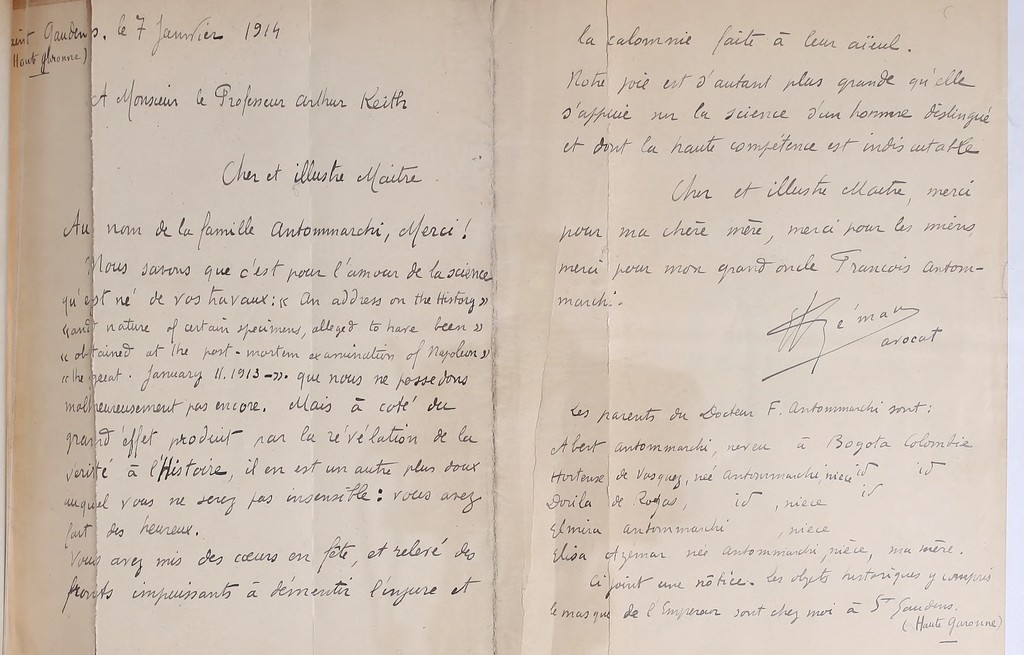 Saint Gaudens, le 7 Janvier 1914
(Haute Garonne)
A Monsieur le Professeur Arthur Keith
Cher et illustre Maitre
Au nom de la famille Antommarchi, Merci !
Nous savons que c'est pour l'amour de la science
qu'est né de vos travaux : « An address on the History »
« and nature of certain specimens, alleged to have been »
« obtained at the post-mortem examination of Napoleon »
« the great. January 11. 1913 - ». que nous ne possedons
malheureusement pas encore. Mais à coté du
grand effet produit par la révélation de la
verité à l'Histoire, il en est un autre plus doux
auquel vous ne serez pas insensible : vous avez
fait des heureux.
Vous avez mis des cœurs en fête, et relevé des
fronts impuissants à démentir l'injure et
la calomnie faite à leur aïeul.
Notre joie est d'autant plus grande qu'elle
s'appuie sur la science d'un homme distingué
et dont la haute compétence est indiscutable
Cher et illustre Maitre, merci
pour ma chère mère, merci pour les miens,
merci pour mon grand oncle Francois Antom-
marchi.
avocat
Les parents du Docteur F. Antommarchi sont :
Albert Antommarchi, neveu à Bogota Colombie
Hortense de Vasquez, née Antommarchi, nièce id id
Dorila de Rojas, id , nièce id
Elmira Antommarchi , nièce
Elisa Azemar née Antommarchi nièce, ma mère.
Ci joint une nôtice. Les objets historiques y compris
le masque de l'Empereur sont chez moi à St Gaudens.
(Haute Garonne)